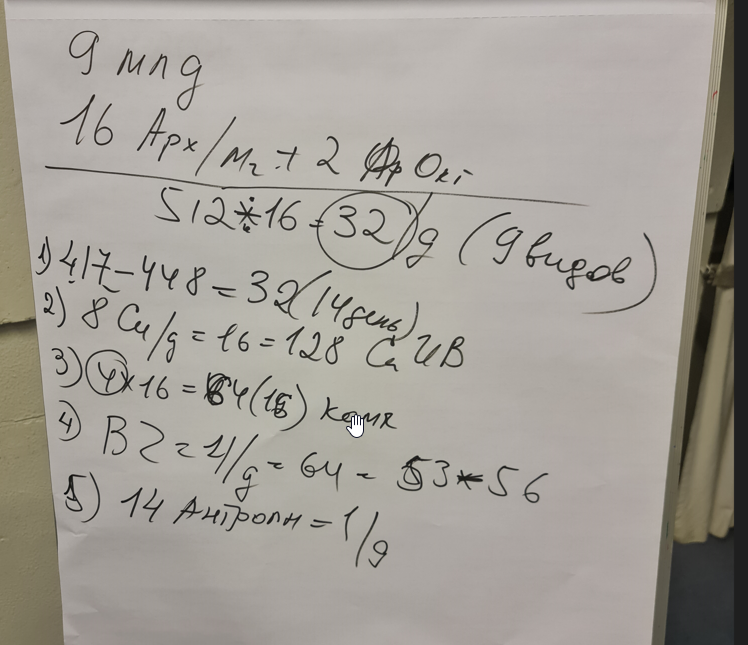 9 млд
16 Арх/м2 + 2 Окт
512 ÷ 16 = 32/g (9 видов)
1) 417-448 = 32 (14 день)
2) 8 Си/g = 16 = 128 Си ЦВ
3) 4×16 = 64(16)
4) B2 = 4/g = 64 = 53*56
5) 14 Антропн = 1/g